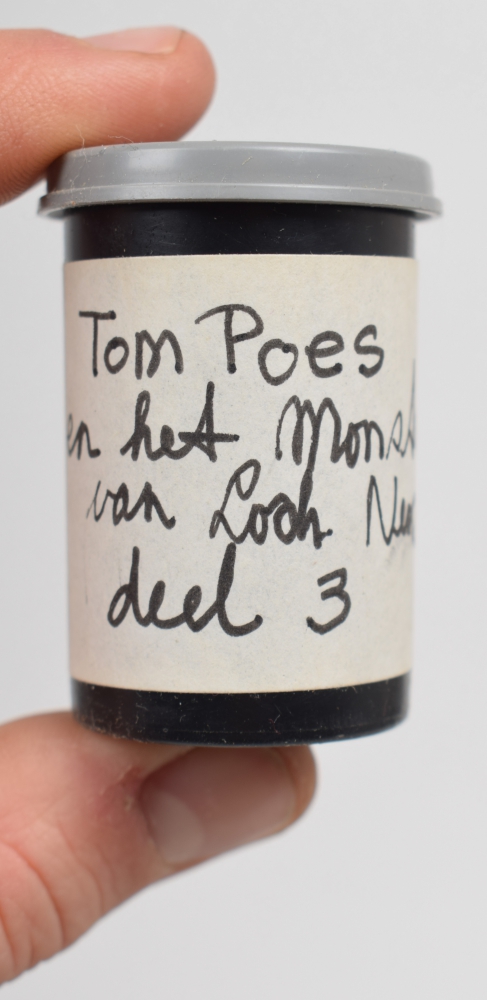 Tom Poes
en het Monst
van Loch Nes
deel 3